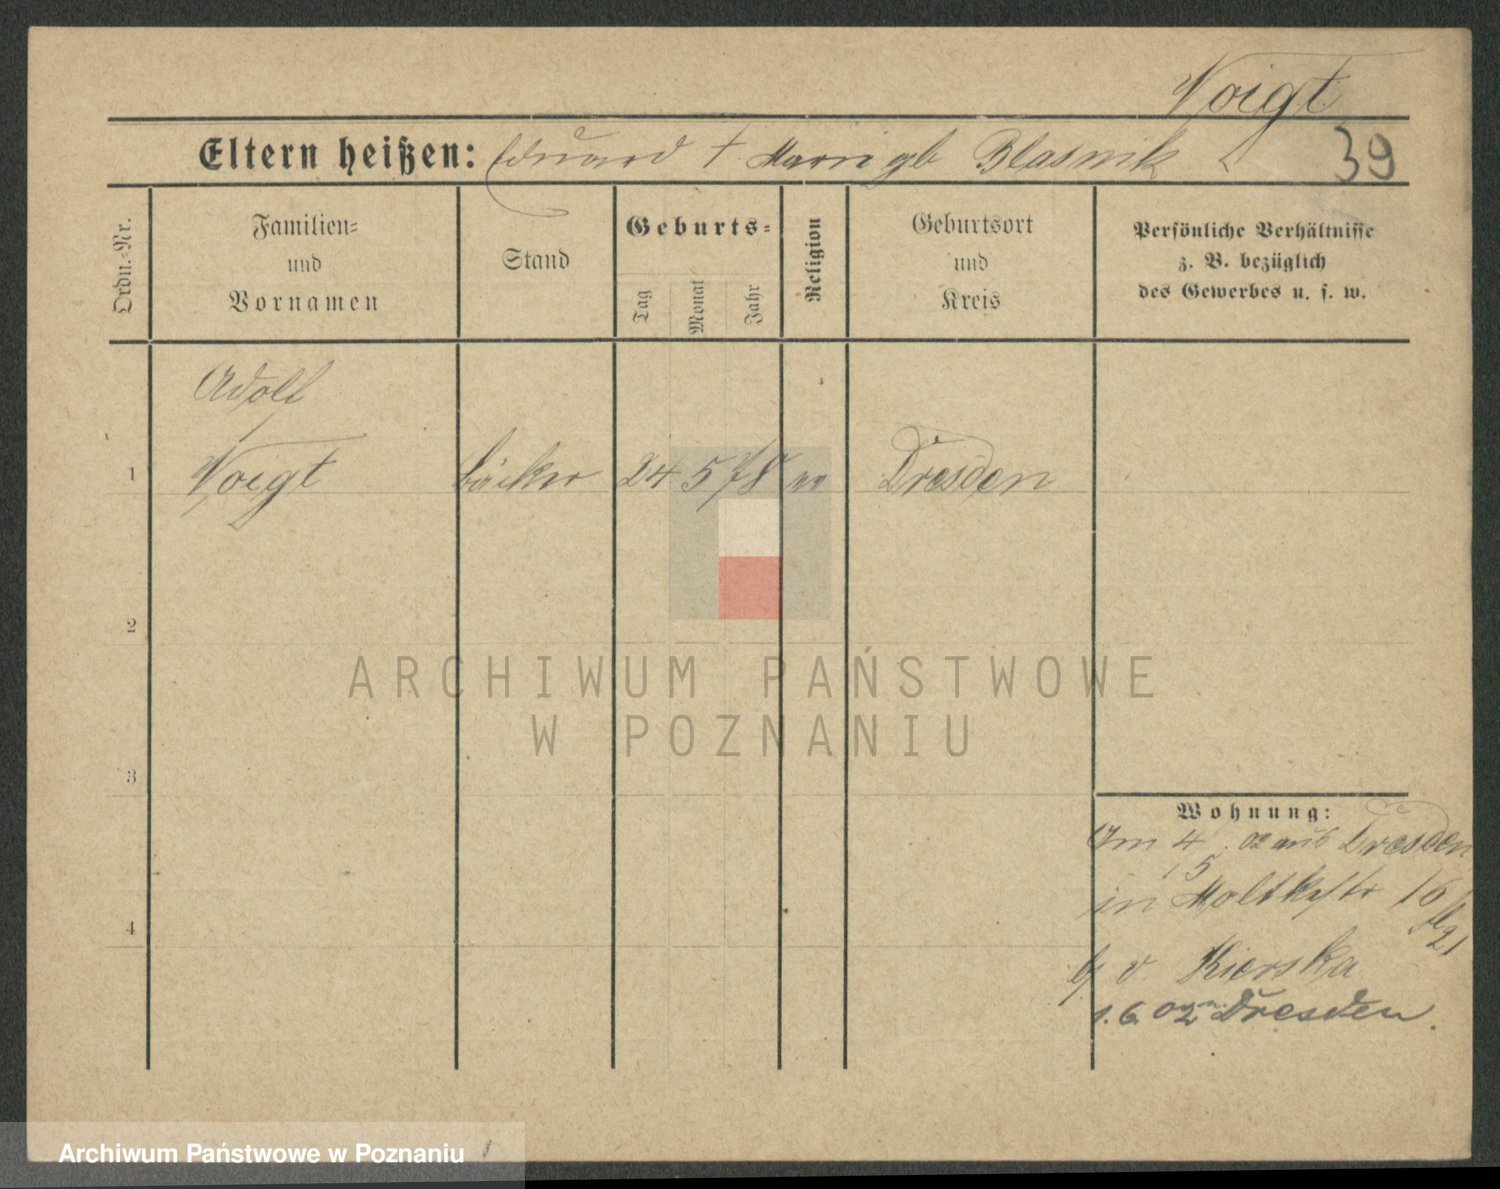 Voigt
39
Eltern heißen: Eduard † Marri gb Blasnik
Ordn.-Nr.
Familien-
und
Vornamen
Stand
Geburts-
Tag
Monat
Jahr
Religion
Geburtsort
und
Kreis
Persönliche Verhältnisse
z. B. bezüglich
des Gewerbes u. s. w.
Adolf
1 Voigt Bäcker 24 5 78 Dresden
2
3
4
Wohnung:
Am 4/5 02 aus Dresden
in Moltkestr 16
b v. Kierska
1. 6. 02 n. Dresden.
ARCHIWUM PAŃSTWOWE
W POZNANIU
Archiwum Państwowe w Poznaniu